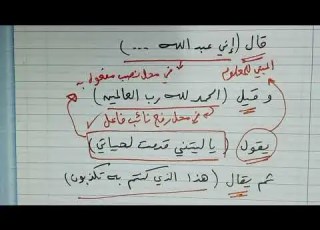 قال (إني عبد الله ...)
المبني للمعلوم
في محل نصب مفعول به
و قيل (الحمد لله رب العالمين)
في محل رفع نائب فاعل
يقول (يا ليتني قدمت لحياتي)
ثم يقال (هذا الذي كنتم به تكذبون)